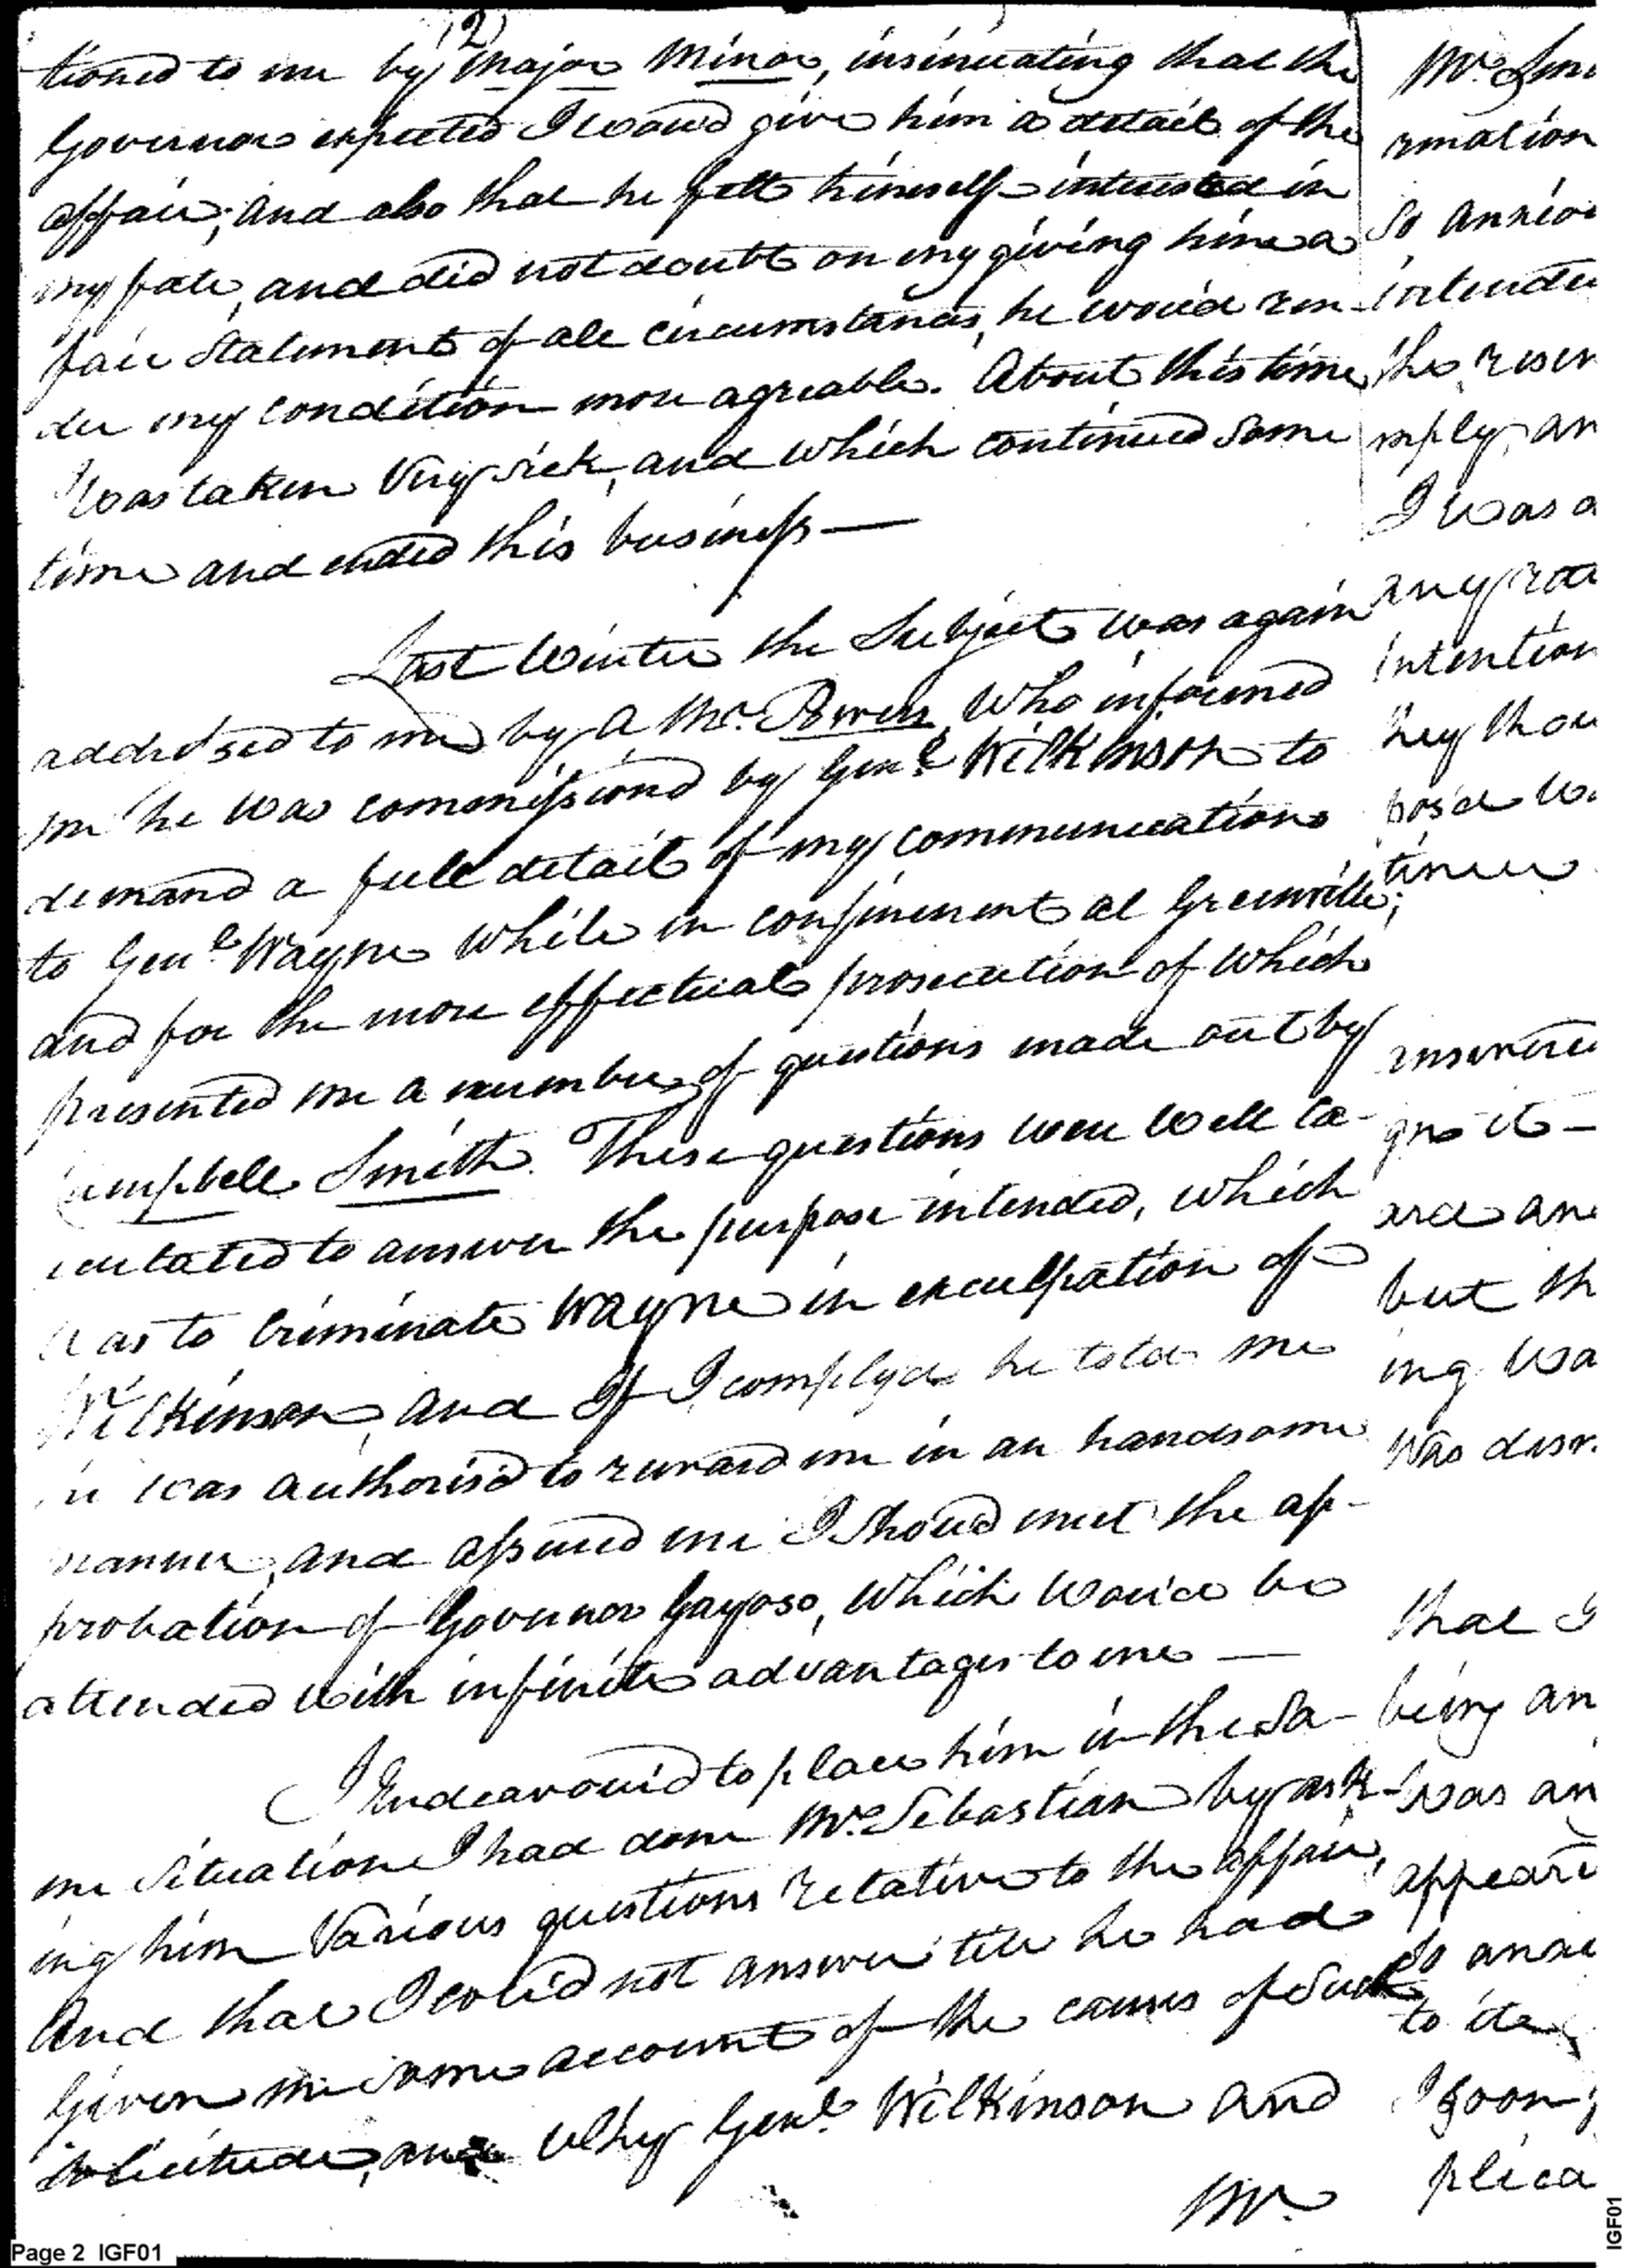 (2)
tioned to me by Major Minor, insinuating that the
Governor expected I woud give him a detail of the
affair; and also that he felt himself interested in
my fate, and did not doubt on my giving him a
fair Statement of all circumstances, he would ren-
der my condition more agreable. About this time
I was taken Very sick, and which continued Some
time and ended this business —
Last Winter the Subject was again
addressed to me by a Mr.
Who informed
me he was commissiond by Genl. Wilkinson to
demand a full detail of my communications
to Genl. Wayne while in confinement at Greenville;
and for the more effectual prosecution of which
presented me a number of questions made out by
Campbell Smith. These questions were well cal-
culated to answer the purpose intended, which
was to Criminate Wayne in exculpation of
Wilkinson, and If I complyd he told me
he was authoris'd to reward me in an handsome
manner, and assured me I shoud meet the ap-
probation of Governor Gayoso, which would be
attended with infinite advantages to me —
I Endeavour'd to place him in the Sa-
me Situation I had done Mr. Sebastian by ask-
ing him Various questions relative to the affair,
And that I could not answer till he had
Given me some account of the causes of Such
solicitude, and why Genl. Wilkinson and
Mr.
rmation
So anxiou
intende
the reser
mply, an
I was a
any
intention
they thou
pos'd w
tinue
but th
ing wa
Was
that I
being an
was an
appeare
to
I soon
plica
Page 2 IGF01
IGF01